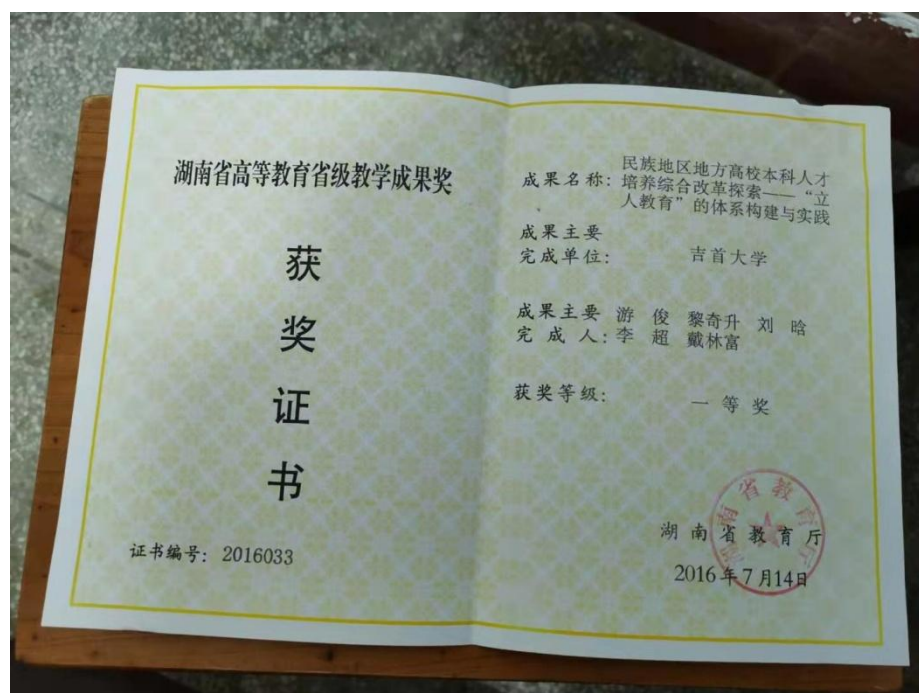 湖南省高等教育省级教学成果奖
获
奖
证
书
证书编号：2016033
成果名称：民族地区地方高校本科人才
培养综合改革探索——“立
人教育”的体系构建与实践
成果主要
完成单位：吉首大学
成果主要 游 俊 黎奇升 刘 晗
完 成 人：李 超 戴林富
获奖等级：一 等 奖
湖南省教育厅
湖南省教育厅
2016年7月14日